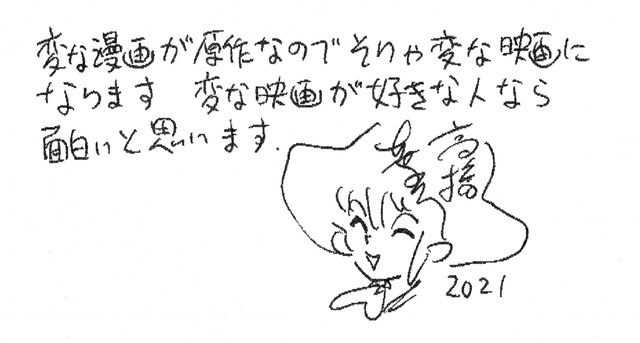 変な漫画が原作なのでそりゃ変な映画に
なります 変な映画が好きな人なら
面白いと思います.
高橋
葉介
2021